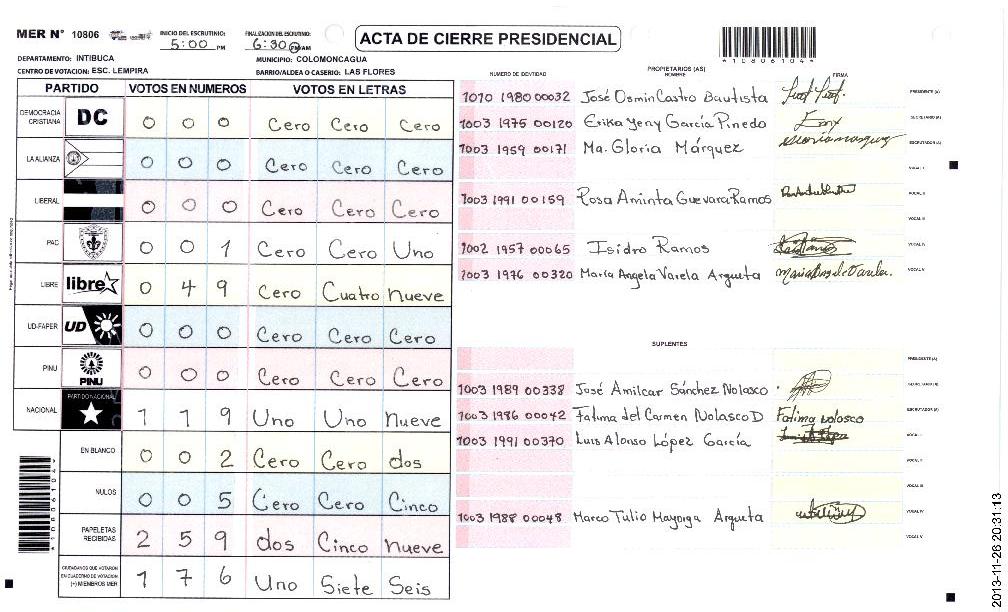 MER N° 10806
INICIO DEL ESCRUTINIO: 5:00 PM
FINALIZACION DEL ESCRUTINIO: 6:30 PM/AM
ACTA DE CIERRE PRESIDENCIAL
*10806104*
DEPARTAMENTO: INTIBUCA
MUNICIPIO: COLOMONCAGUA
CENTRO DE VOTACION: ESC. LEMPIRA
BARRIO/ALDEA O CASERIO: LAS FLORES
PARTIDO VOTOS EN NUMEROS VOTOS EN LETRAS
DEMOCRACIA CRISTIANA DC 0 0 0 Cero Cero Cero
LA ALIANZA 0 0 0 Cero Cero Cero
LIBERAL 0 0 0 Cero Cero Cero
PAC 0 0 1 Cero Cero Uno
LIBRE libre 0 4 9 Cero Cuatro nueve
UD-FAPER UD 0 0 0 Cero Cero Cero
PINU PINU 0 0 0 Cero Cero Cero
NACIONAL PARTIDO NACIONAL 1 1 9 Uno Uno nueve
EN BLANCO 0 0 2 Cero Cero dos
NULOS 0 0 5 Cero Cero Cinco
PAPELETAS RECIBIDAS 2 5 9 dos Cinco nueve
CIUDADANOS QUE VOTARON EN CUADERNO DE VOTACION (+) MIEMBROS MER 1 7 6 Uno Siete Seis
*10806104*
NUMERO DE IDENTIDAD PROPIETARIOS (AS) NOMBRE FIRMA
1010 1980 00032 José Osmin Castro Bautista PRESIDENTE (A)
1003 1975 00120 Erika Yeny García Pinedo SECRETARIO (A)
1003 1959 00171 Ma. Gloria Márquez ESCRUTADOR (A)
VOCAL I
1003 1991 00159 Rosa Aminta Guevara Ramos VOCAL II
VOCAL III
1002 1957 00065 Isidro Ramos VOCAL IV
1003 1976 00320 María Angela Varela Argueta VOCAL V
SUPLENTES
PRESIDENTE (A)
1003 1989 00338 José Amilcar Sánchez Nolasco SECRETARIO (A)
1003 1986 00042 Fatima del Carmen Nolasco D Fatima nolasco ESCRUTADOR (A)
1003 1991 00370 Luis Alonso López García VOCAL I
VOCAL II
VOCAL III
1003 1988 00048 Marco Tulio Mayorga Argueta VOCAL IV
VOCAL V
2013-11-26 20:31:13